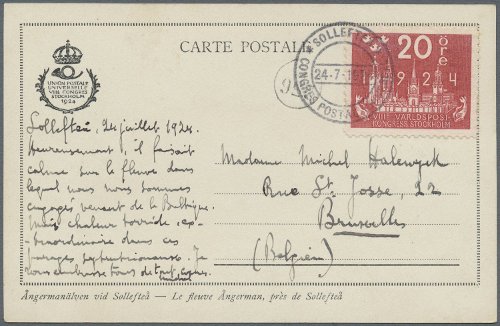 CARTE POSTALE
UNION POSTALE
UNIVERSELLE
VIII CONGRÈS
STOCKHOLM
1924
SOLLEFTEÅ
24-7-192
CONGRÈS POSTAL
9
20 öre
1924
VIII VÄRLDSPOST
KONGRESS STOCKHOLM
Sollefteå, 24 juillet 1924.
Heureusement, il faisait
calme sur le fleuve dans
lequel nous nous sommes
engagés venant de la Baltique.
Mais chaleur torride, ex-
traordinaire dans ces
parages septentrionaux. Je
vous embrasse tous de tout cœur.
Madame Michel Halewyck
Rue St. Josse, 22
Bruxelles
(Belgien)
Ångermanälven vid Sollefteå — Le fleuve Ångerman, près de Sollefteå